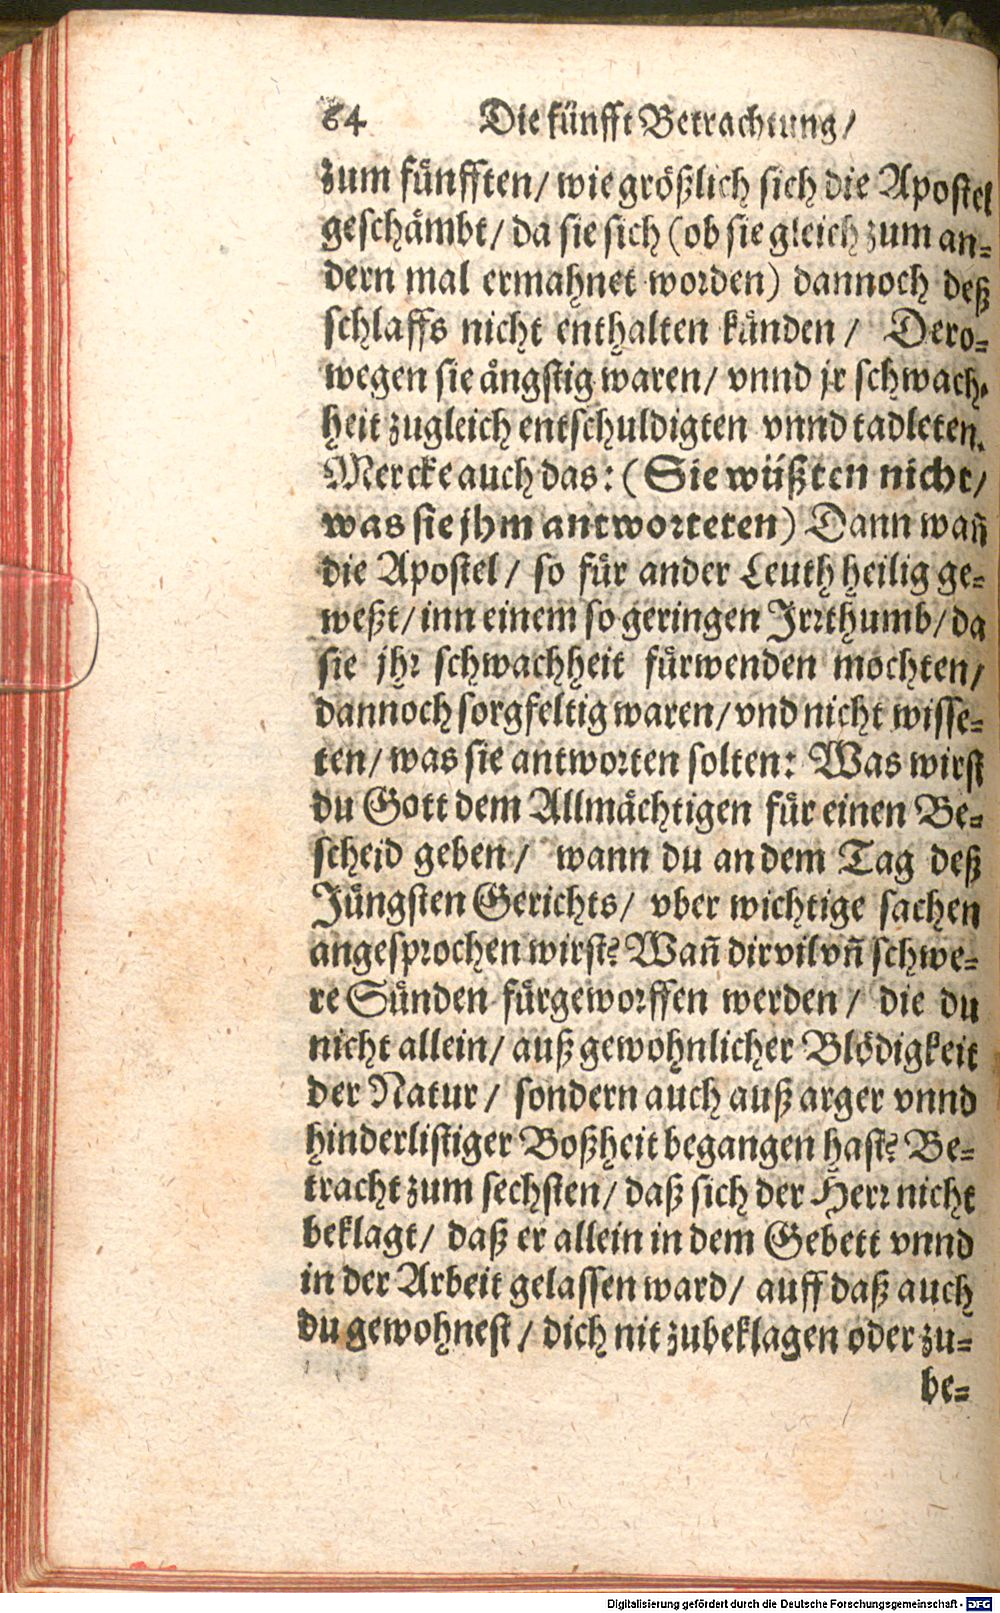 64 Die fünfft Betrachtung/
zum fünfften/ wie größlich sich die Apostel
geschämbt/ da sie sich (ob sie gleich zum an-
dern mal ermahnet worden) dannoch deß
schlaffs nicht enthalten künden/ Dero-
wegen sie ängstig waren/ vnnd jr schwach-
heit zugleich entschuldigten vnnd tadleten.
Mercke auch das: (Sie wüßten nicht/
was sie jhm antworteten) Dann wañ
die Apostel/ so für ander Leuth heilig ge-
weßt/ inn einem so geringen Irrthumb/ da
sie jhr schwachheit fürwenden mochten/
dannoch sorgfeltig waren/ vnd nicht wisse-
ten/ was sie antworten solten: Was wirst
du Gott dem Allmächtigen für einen Be-
scheid geben/ wann du an dem Tag deß
Jüngsten Gerichts/ vber wichtige sachen
angesprochen wirst? Wañ dir vil vñ schwe-
re Sünden fürgeworffen werden/ die du
nicht allein/ auß gewohnlicher Blödigkeit
der Natur/ sondern auch auß arger vnnd
hinderlistiger Boßheit begangen hast? Be-
tracht zum sechsten/ daß sich der Herr nicht
beklagt/ daß er allein in dem Gebett vnnd
in der Arbeit gelassen ward/ auff daß auch
du gewohnest/ dich nit zubeklagen oder zu-
be-
Digitalisierung gefördert durch die Deutsche Forschungsgemeinschaft - DFG